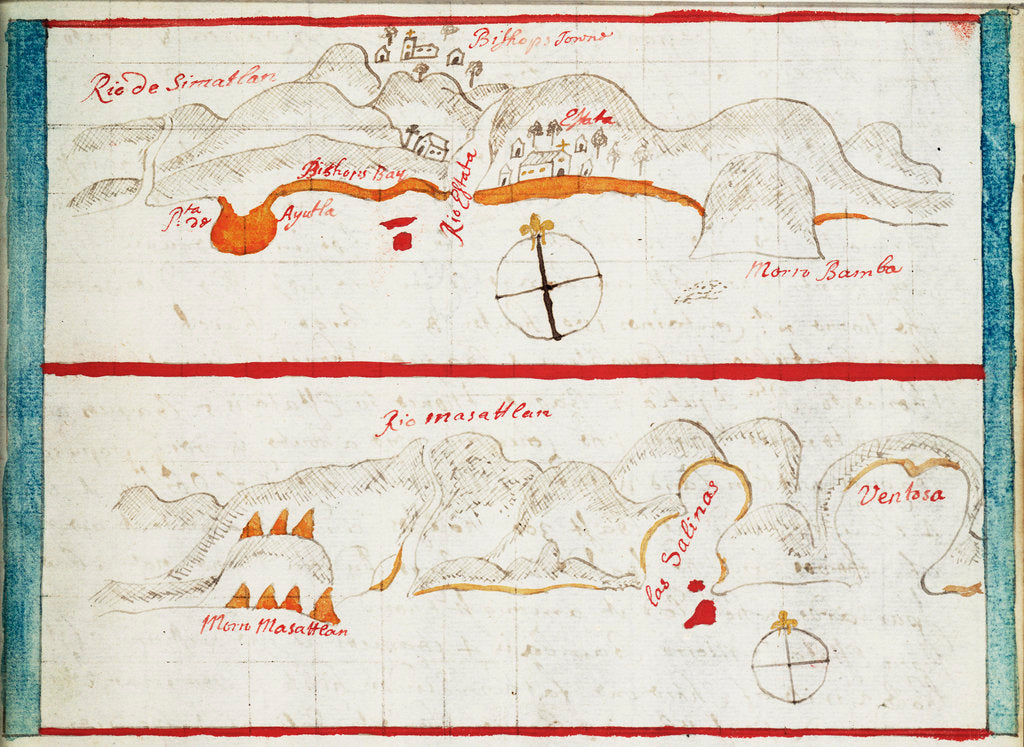 Bishops Towne
Rio de Simatlan
Estata
Bishops Bay
Rio Estata
Pta de
Ayutla
Morro Bamba
Rio Masattlan
las Salinas
Ventosa
Morro Masattlan